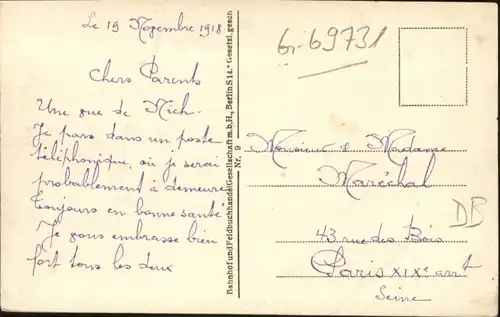 Le 19 Novembre 1918
Chers Parents
Une vue de Mich-
Je pars dans un poste
téléphonique, où je serai
probablement à demeure
Toujours en bonne santé
Je vous embrasse bien
fort tous les deux
Bahnhof und Feldbuchhandel Gesellschaft m.b.H., Berlin S 14.* Gesetzl. gesch
Nr. 9
6-69731
Monsieur & Madame
Maréchal
43 rue des Bois
Paris XIXe arrt
Seine
DB